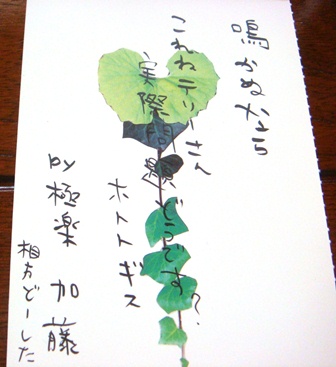 鳴かぬなら
これねテリーさん
実際問題どうです?
ホトトギス
by 極楽 加藤
相方どーした